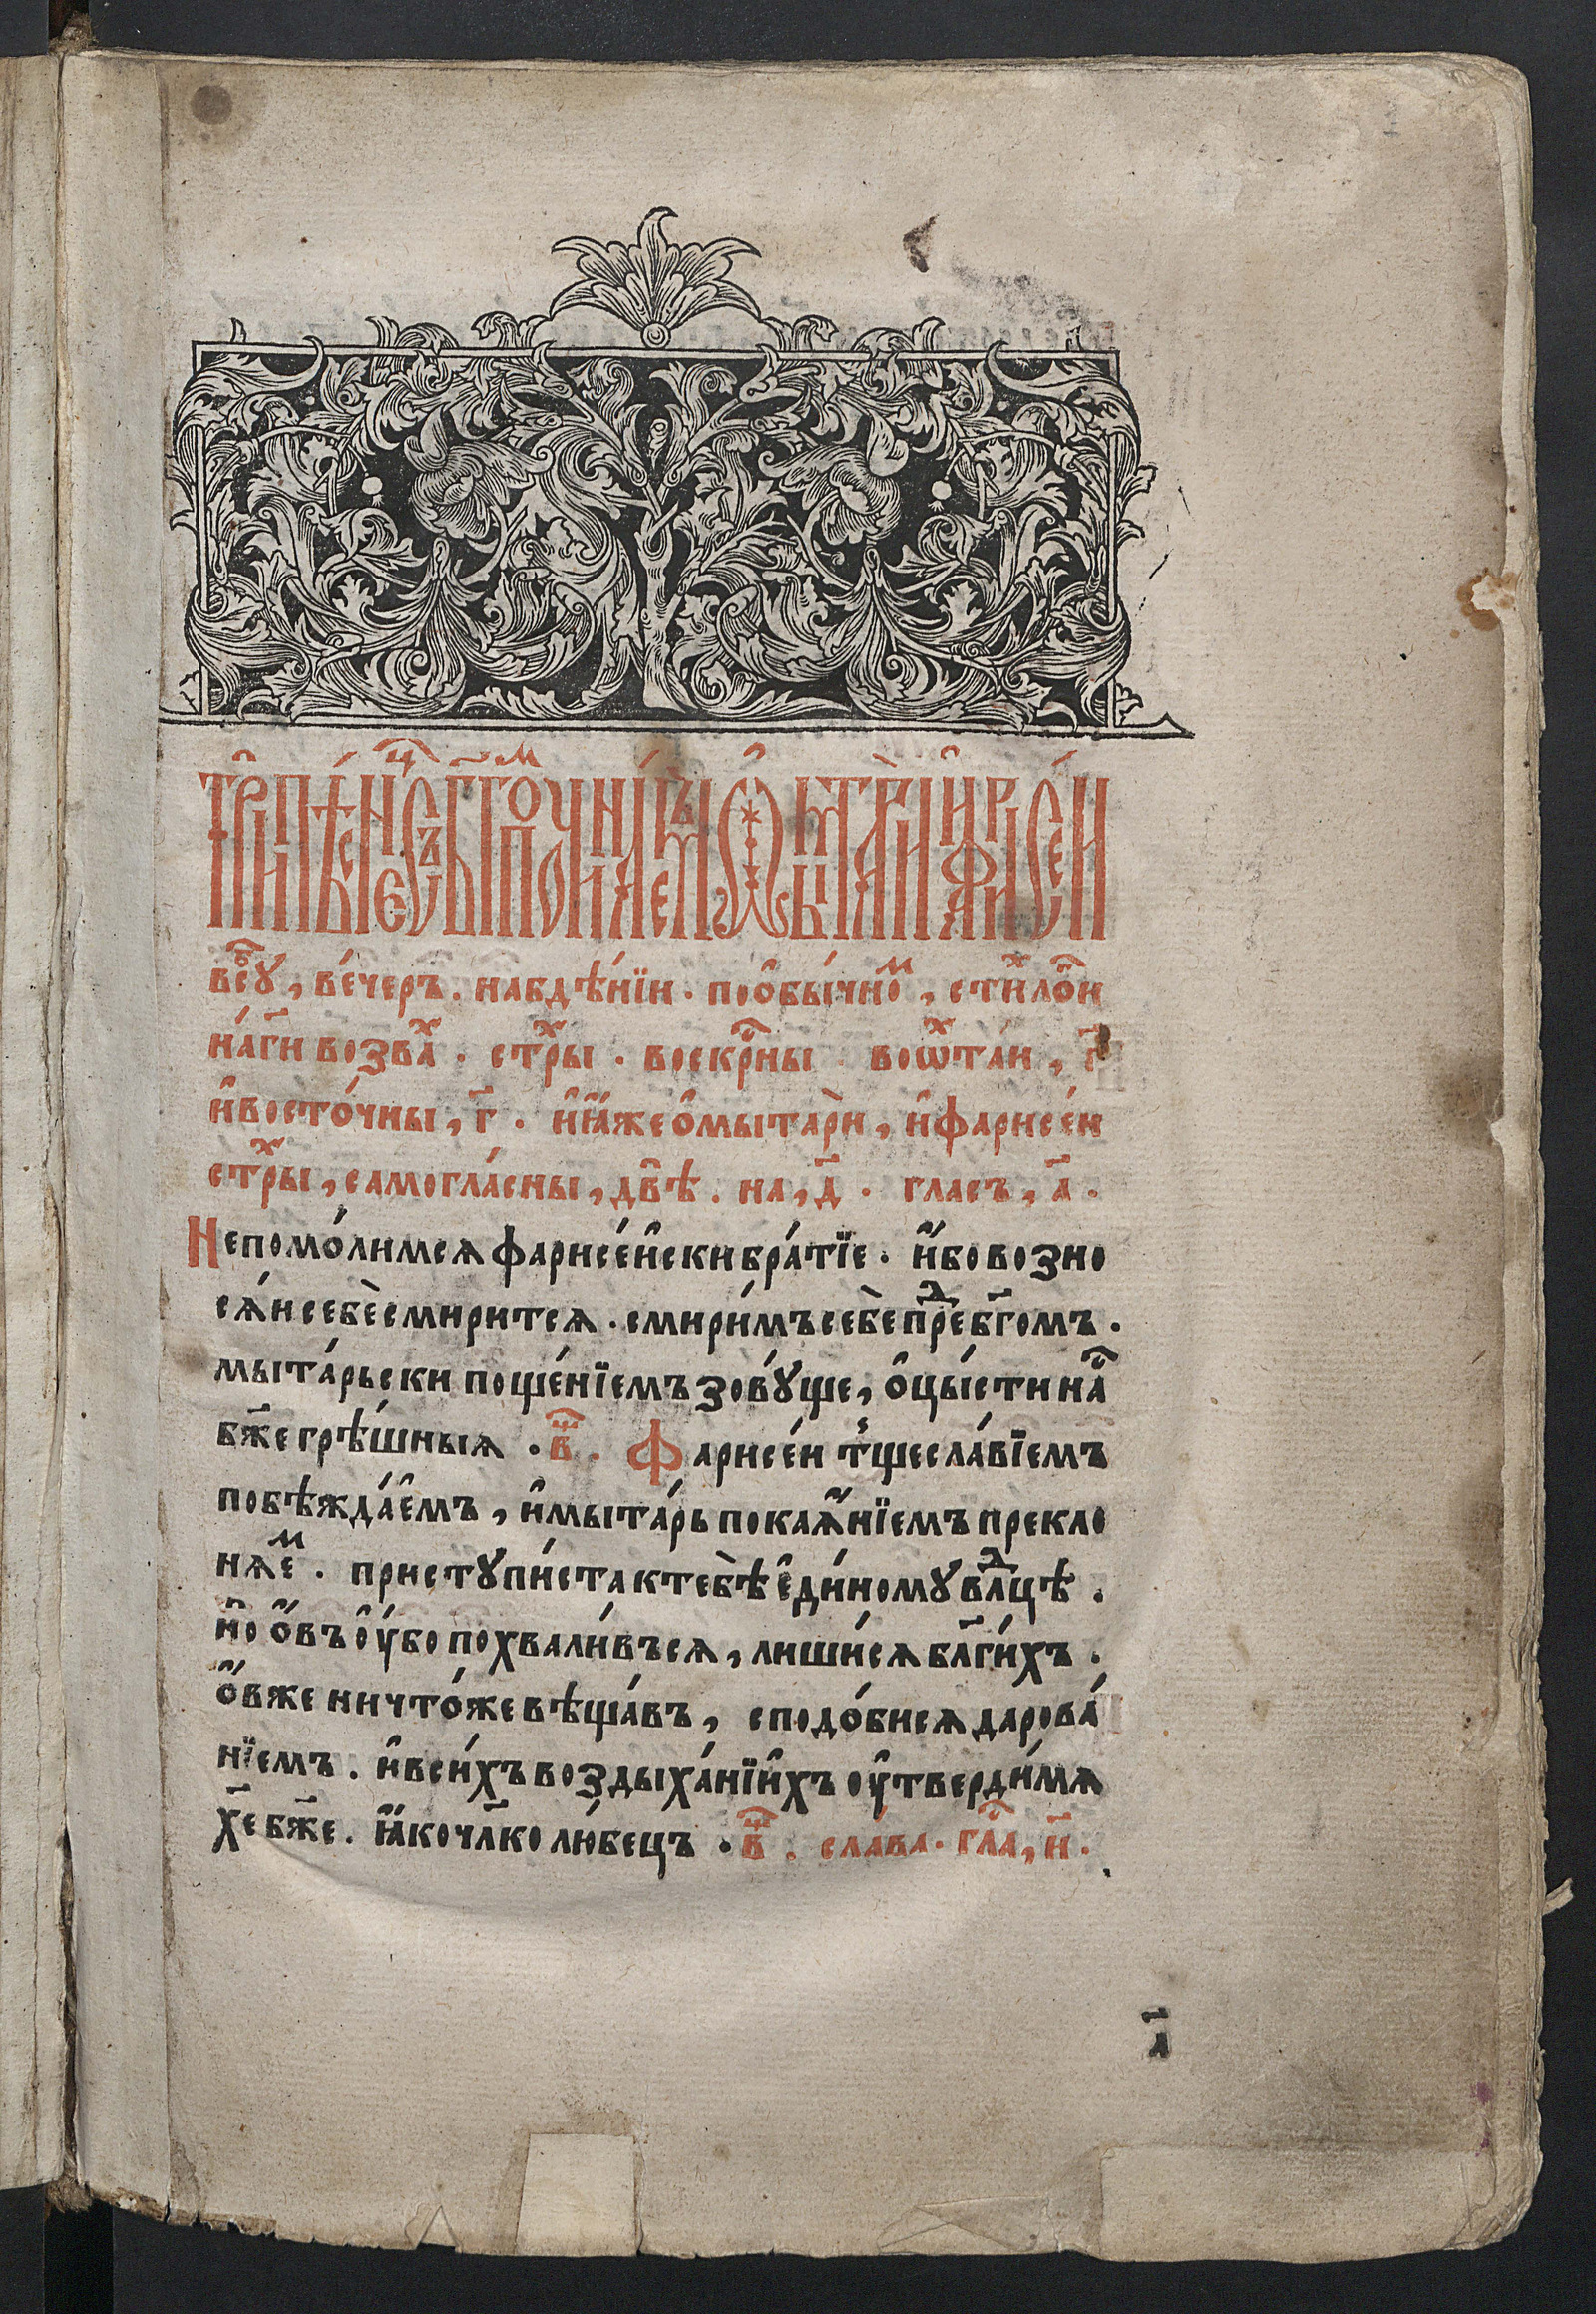 Трипѣснецъ съ бг҃омъ починаемъ ѡ мытари и фарисеи
въ сꙋ, ве́черъ. на бдѣ́нїи. по ѻ҆бы́чном, стихило́ги
на́ гн҃и возвах. стхры. воскр҃ны воѡктаи, г҃
и҆ восто́чны, г҃. и҆ и҆̀же ѻ҆ мытари̂, и҆ фарисе́и
стхры, самогла́сны, двѣ̂. на, д҃. гласъ, а҃.
Не помо́лимсѧ фарисе́и҆ски бра́тїе. и҆́бо возно
сѧ́и себѐ смиритсѧ. смири́мъ себѐ предбг҃омъ.
мыта́рьски поще́нїемъ зовꙋ́ще, ѻ҆цы́сти нас
бж҃е грѣ́шныѧ. Фарисе́и тщесла́вїемъ
побѣжда́е҆мъ, и҆ мыта́рь покаѧ́нїемъ прекло
нѧ́ем. пристꙋпи́ста к тебѣ̀ є҆ди́номꙋ влⷣцѣ.
но̑ ѻ҆́въ оу҆́бо похвали́въсѧ, лиши́сѧ бл҃ги́хъ.
ѻ҆́вже ничто́же вѣща́въ, сподо́бисѧ дарова́
нїемъ. и҆ в си́хъ воздыха́нїи҆хъ оу҆тверди́ мѧ
хе҃ бж҃е. ꙗ҆́ко чл҃колю́бецъ. сла́ва. глас, и҃.
а҃